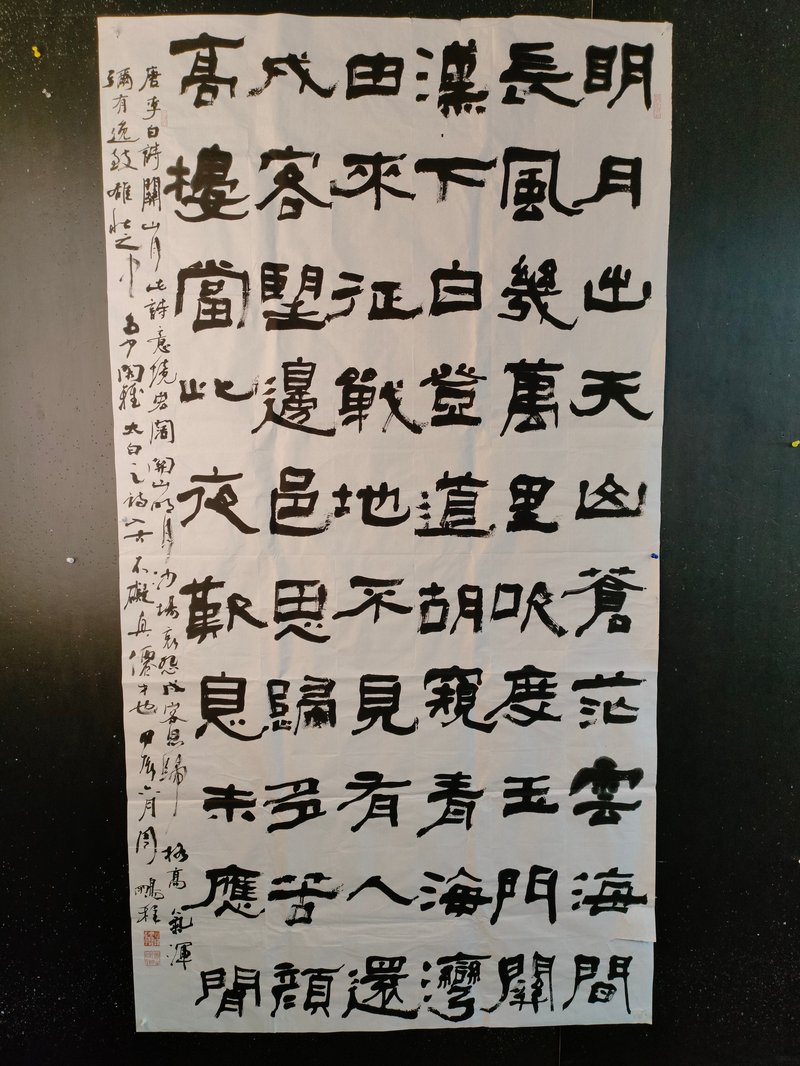 明月出天山蒼茫雲海間
長風幾萬里吹度玉門關
漢下白登道胡窺青海灣
由來征戰地不見有人還
戍客望邊邑思歸多苦顏
高樓當此夜歎息未應閒
唐李白詩關山月此詩意境宏闊關山明月沙場哀怨戍客思歸格高氣渾
彌有逸致雄壯之中多閑雅太白之詩不礙真僊才也甲辰六月周鵬程